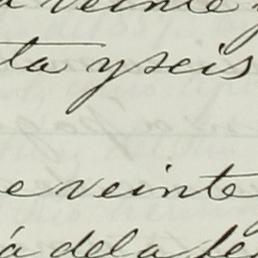 a veinte y
ta y seis
e veinte
á de la fe